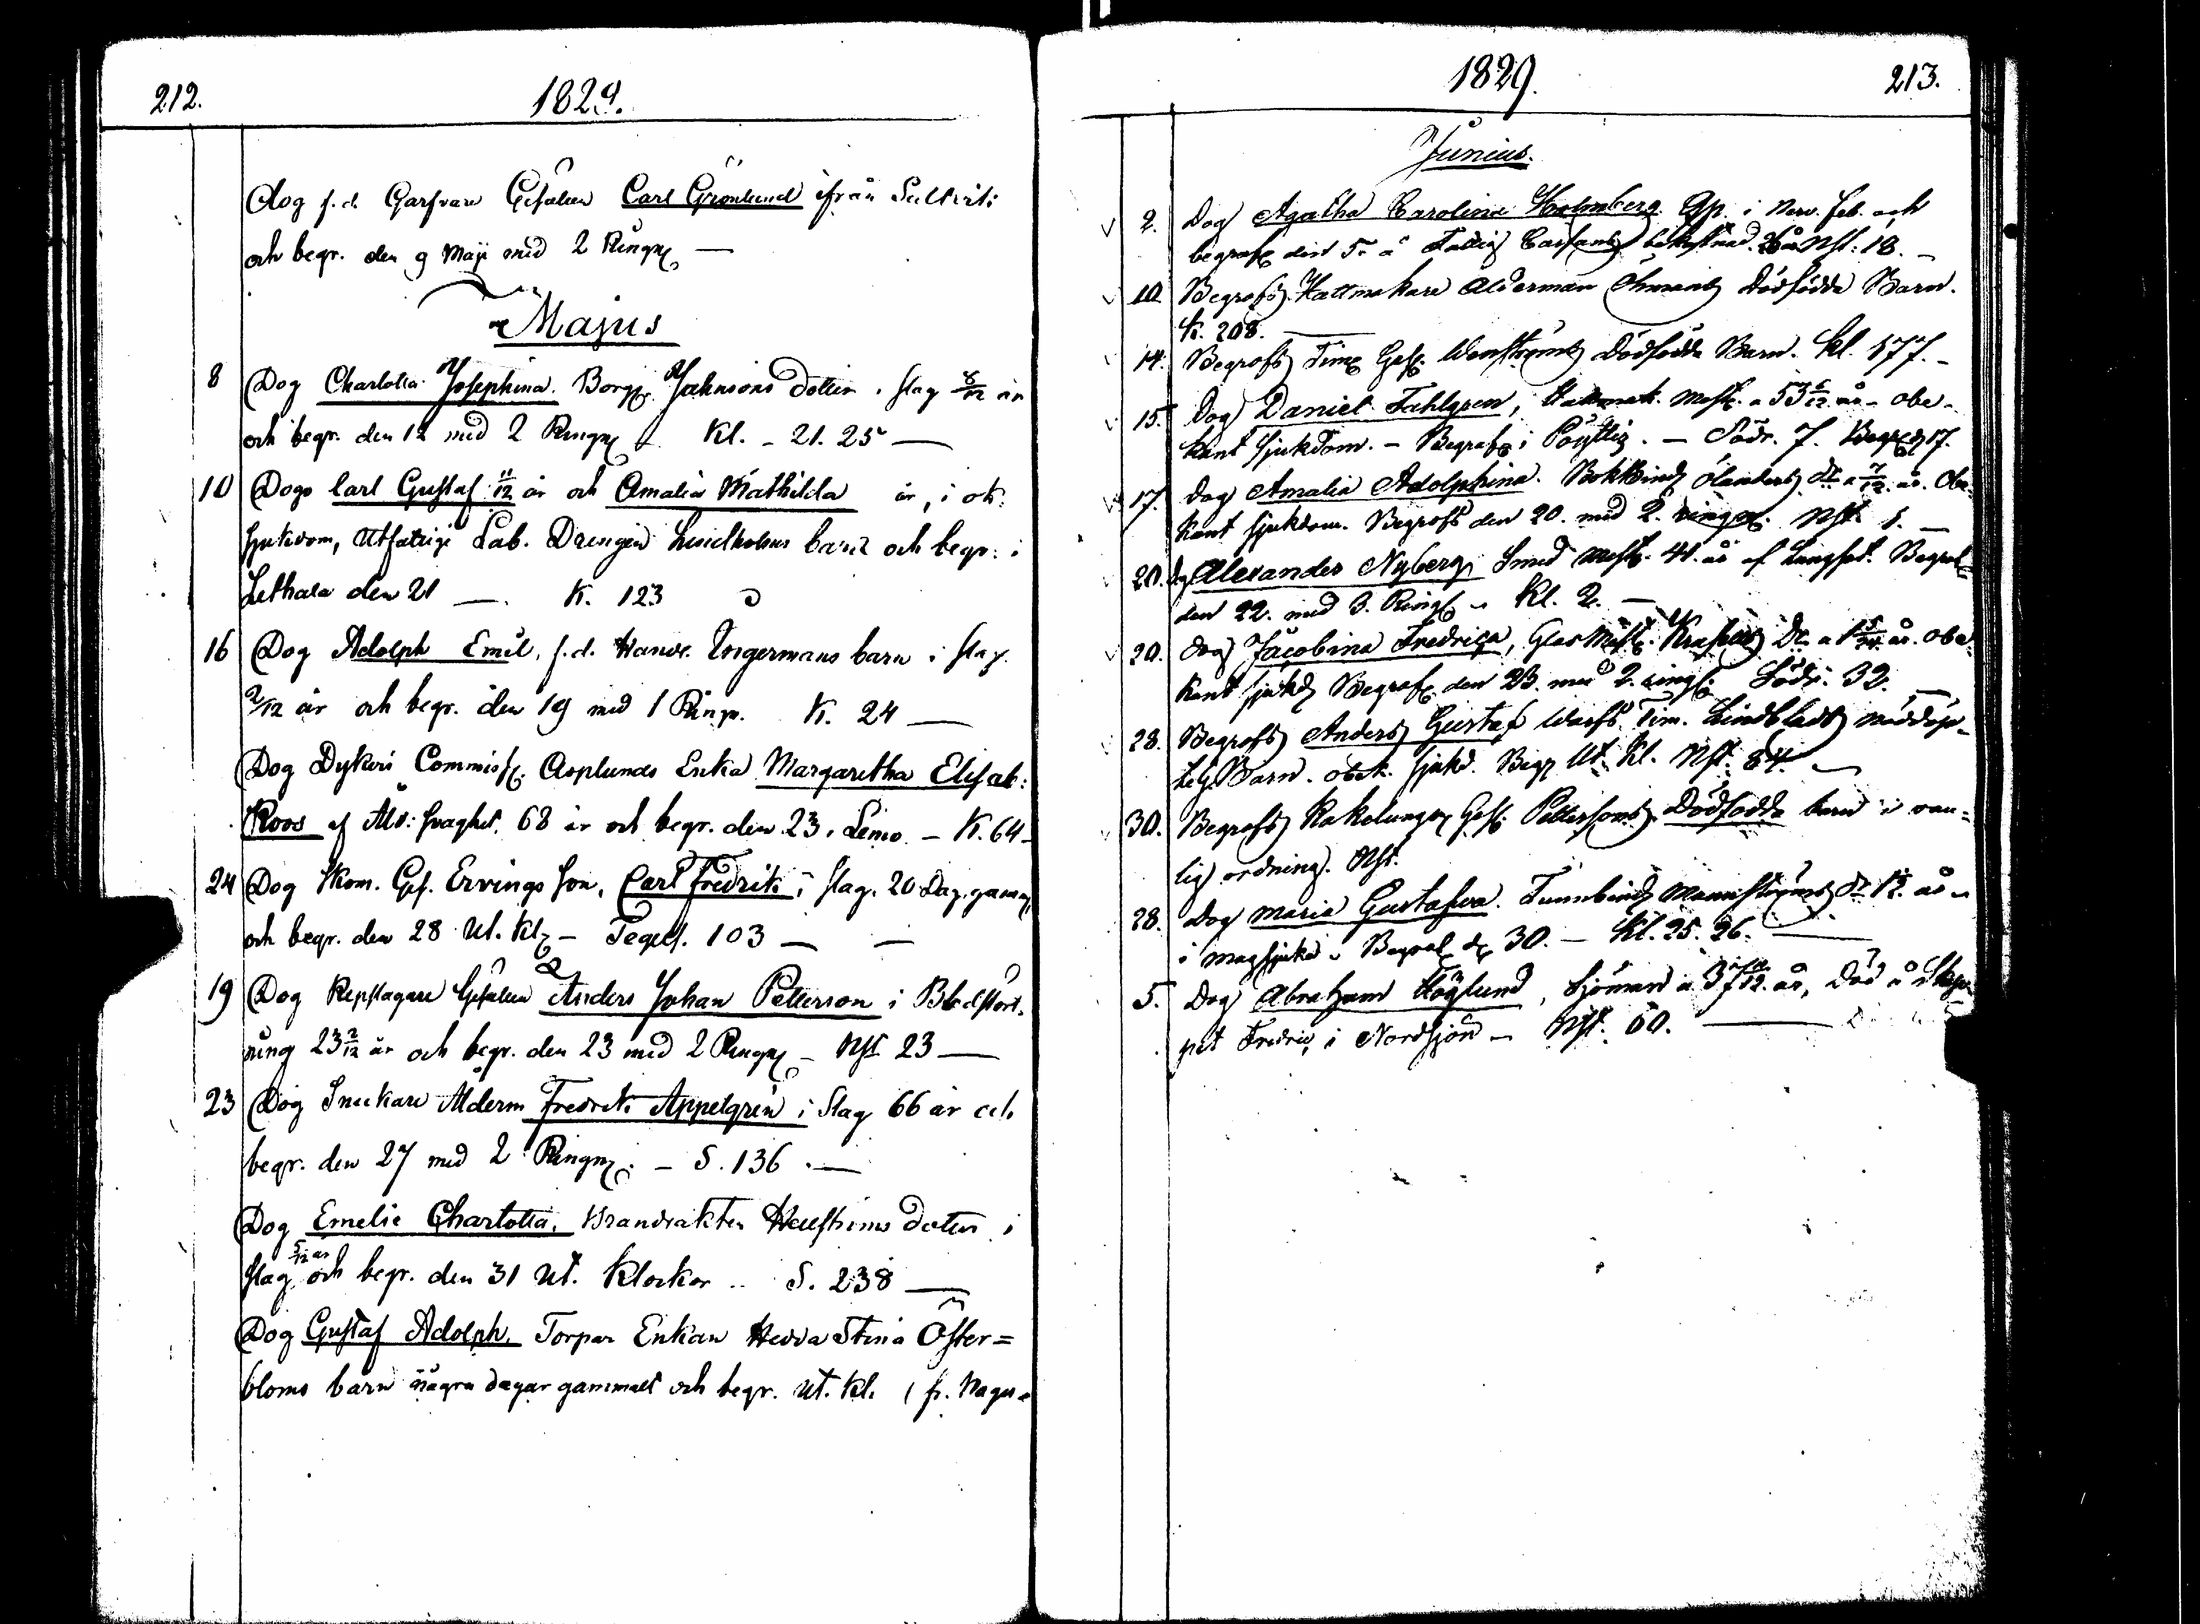 212. 1829.
Dog f.d. Garfvare Gesälen Carl Grönlund ifrån
och begr. den 9 Maji med 2 Ringn
Majus
8 Dog Charlotta Josephina. Borg. Johnsons dotter i slag 8/12 år
och begr. den 12 med 2 Ringn – Kl. – 21. 25 —
10 Dogo Carl Gustaf 11/12 år och Amalia Mathilda år, i ok.
sjukdom, Utfattige Lab. Drengen barn och begr. i
Lethala den 21 —. K. 123
16 Dog Adolph Emil, f.d. Handl. Ingermans barn i slag.
2/12 år och begr. den 19 med 1 Ringn. K. 24 —
Dog Dykeri Commiss. Asplunds Enka Margaretha Elisab:
Roos af Åld: svaghet. 68 år och begr. den 23 i Lemo – K. 64 –
24 Dog Skom. Ges. Ervings son, Carl Fredrik i slag. 20 Dag. gamm
och begr. den 28 Ut. Kl – Tegels. 103 — —
19 Dog Repslagare Gesälen Anders Johan Petterson i Blodstört-
ning 23 2/12 år och begr. den 23 med 2 Ringn – Nst 23 —
23 Dog Snickare Ålderm Fredrik Appelgren i Slag 66 år och
begr. den 27 med 2 Ringn. – S. 136. —
Dog Emelie Charlotta, Brandvakten dotter i
slag 5/12 år och begr. den 31 Ut. Klockor .. S. 238 —
Dog Gustaf Adolph. Torpar Enkan Hedda Stina Öster=
bloms barn några dagar gammalt och begr. Ut. Kl. (fr.
1829. 213.
Junius.
2. Dog Agatha Carolina Holmberg Gp. i Nerv. feb. och
begrafs den 5. å Fattig Cassans bekostnad. Nst. 18. –
10. Begrofs Hattmakare Ålderman Öhmans Dödfödda Barn.
K. 208. —
14. Begrofs Tim Ges. Wenströms Dödfödda Barn. Kl. 177. –
15. Dog Daniel Fahlgren, Mäst. a 53 6/12 år – obe-
kant sjukdom. – Begrafs i Pöyttis. – Södr. 7. 17.
17. Dog Amalia Adolphina. Bokbind Ölanders dr a 7/12 år. Obe-
kant sjukdom. Begrofs den 20. med 2. ringn. Nst. 1. —
20. Dog Alexander Nyberg Smed Mäst. 41. år af Lungsot. Begrof
den 22. med 3. Ring – Kl. 2. —
20. Dog Jacobina Fredrica, Glas Mäst. Dr. a år. obe-
kant sjukd Begrof den 23. med 2. ring. Södr. 32.
28. Begrofs Anders Gustaf Warfs Tim. Lindblads nöddöp-
te G. Barn. obek. sjukd. Begr Ut. Kl. Nst. 84. —
30. Begrofs Kakelugn Ges. Pettersons Dödfödda barn i van=
lig ordning. Nst.
28. Dog Maria Gustafva. Tunnbind dr 12. år –
i magsjuka – Begrof d 30. — Kl. 25. 26. —
5. Dog Abraham Höglund, Sjöman a år, Död å Skep-
pet Fredric i Nordsjön – Nst. 60. —